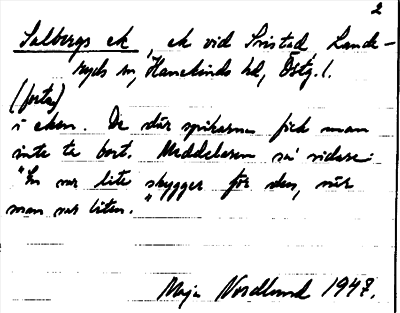 2
Salbergs ek, ek vid Sristad, Lands-
ryds sn, Hanekinds hd, Östg.l.
(forts)
i eken. De där spikarna fick man
inte ta bort. Meddelaren sa' vidare:
"En var lite skygger för den, när
man var liten."
Maja Nordlund 1947.